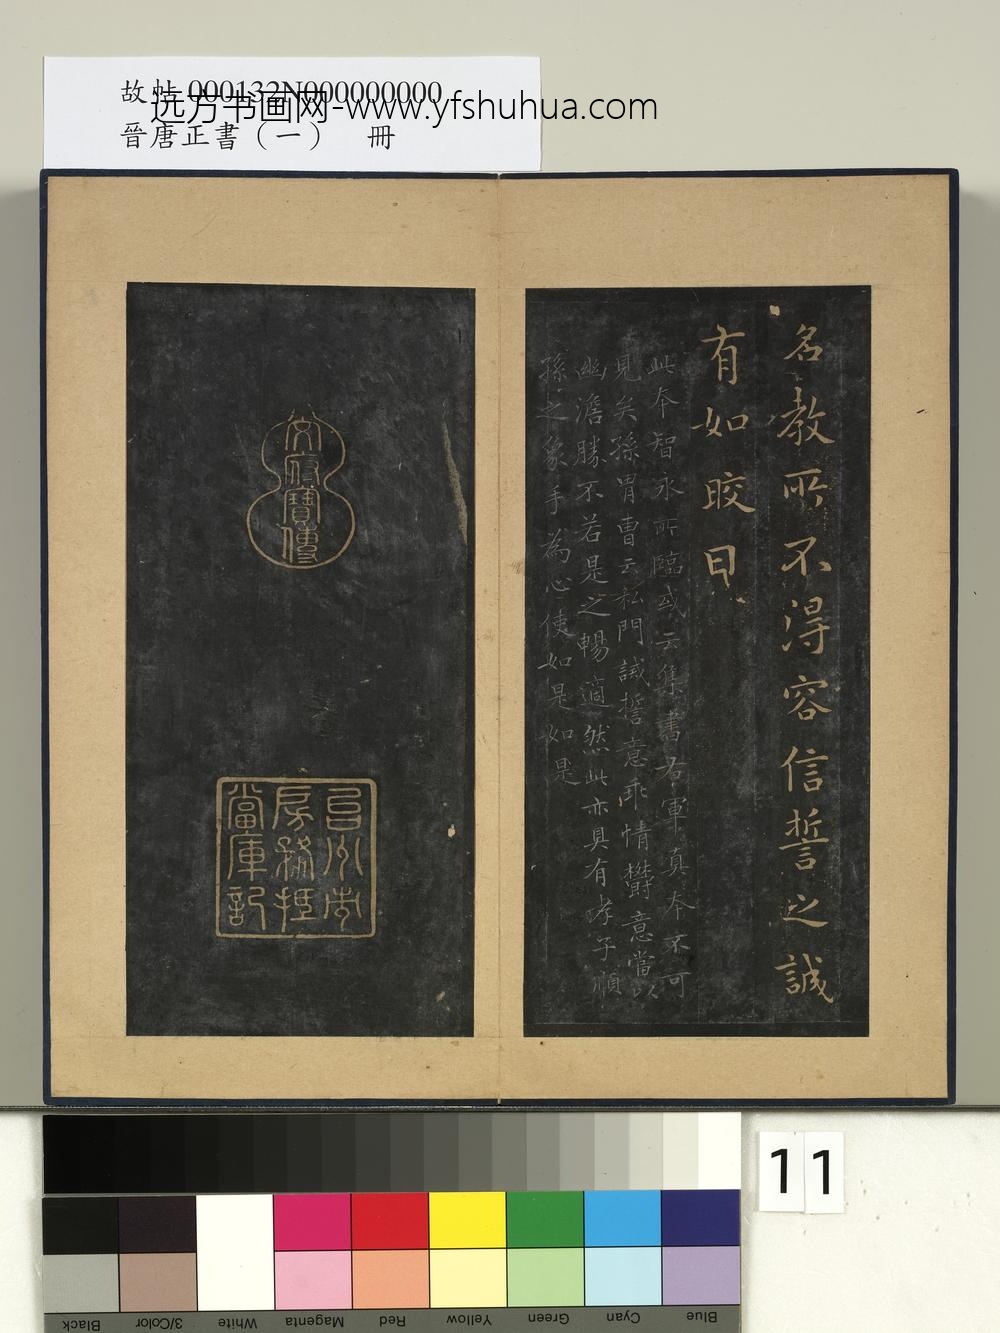 故帖 000132N000000000
远方书画网-www.yfshuhua.com
晉唐正書（一） 冊
名教所不得容信誓之誠
有如皎日
此本智永所臨或云集書右軍真本不可
見矣孫胄曹云私門誡誓意乖情鬱意當以
幽澹勝不若是之暢適然此亦具有孝子順
孫之象手為心使如是如是
文府寶傳
房務抵
當庫記
11
Black
3/Color
White
Magenta
Red
Yellow
Green
Cyan
Blue